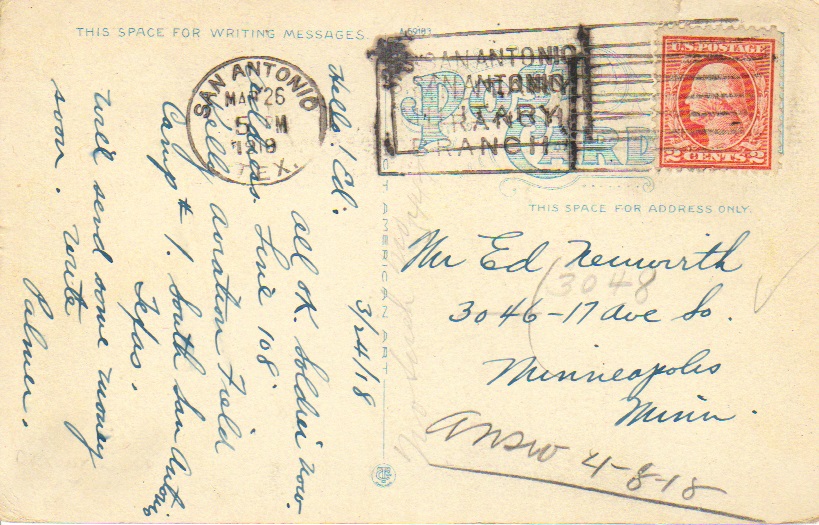 THIS SPACE FOR WRITING MESSAGES.
A-69183
SAN ANTONIO
MAR 26
5 PM
1918
TEX.
SAN ANTONIO
SAN ANTONIO
BRANCH
POST
CARD
U.S. POSTAGE
2 CENTS 2
THIS SPACE FOR ADDRESS ONLY.
Hello! Ed. 3/24/18
All OK. Soldier now.
Address Line 108
Kelly Aviation Field
Camp # 1. South San Antonio
Texas.
We'll send some money
soon. Write
Palmer.
Mr Ed Neuwirth
3046-17 Ave So.
3048
Minneapolis
Minn.
Answ 4-8-18
AMERICAN ART